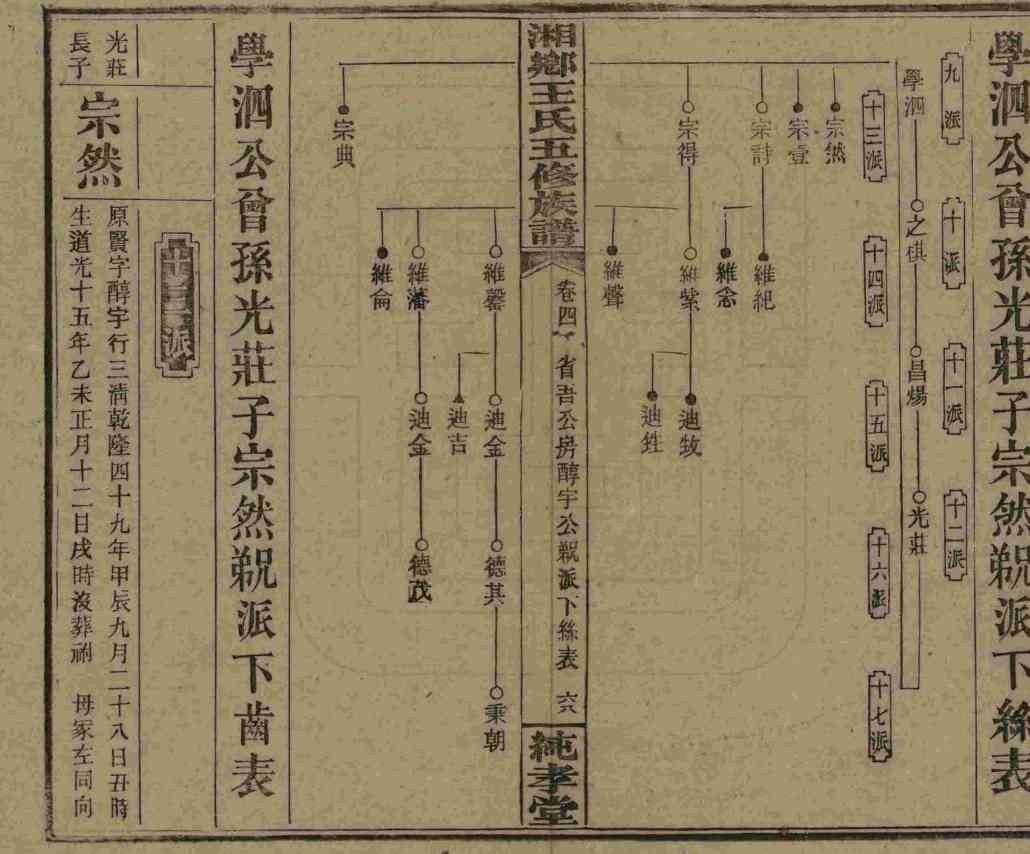 學泗公曾孫光莊子宗然覡派下絲表
九派
十派
十一派
十二派
學泗
之祺
昌煬
光莊
十三派
十四派
十五派
十六派
十七派
宗然
宗壹
宗詩
維紀
維念
宗得
維紫
迪牧
迪鉎
維聲
湘鄉王氏五修族譜
卷四
省吾公房醇宇公覡派下絲表
六八
純孝堂
維馨
迪金
德其
秉朝
迪吉
維藩
迪金
德茂
維侖
宗典
學泗公曾孫光莊子宗然覡派下齒表
十三派
光莊
長子
宗然
原賢字醇宇行三清乾隆四十九年甲辰九月二十八日丑時
生道光十五年乙未正月十二日戌時沒葬祔 母冢左同向